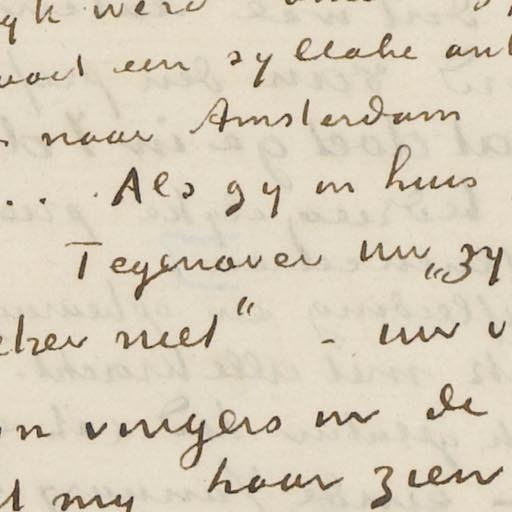 yk werd
een syllabe ant
naar Amsterdam
. . . Als gy in huis
Tegenover uw „zy
zeker niet" - uw v
n vingers in de
my haar zien